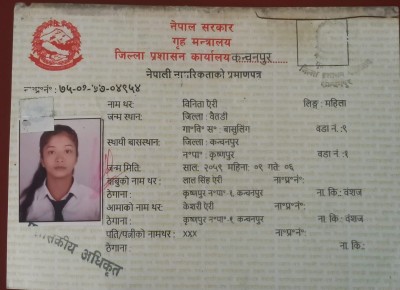 नेपाल सरकार
गृह मन्त्रालय
जिल्ला प्रशासन कार्यालय कन्चनपुर
नेपाली नागरिकताको प्रमाणपत्र
ना॰प्र॰नं॰ :
नाम थर : विनिता ऐरी लिङ्ग : महिला
जन्म स्थान : जिल्ला : बैतडी
गा॰वि॰स॰ : बासुलिंग वडा नं. :९
स्थायी बासस्थान : जिल्ला : कन्चनपुर
न॰पा॰ : कृष्णपुर वडा नं. :१
जन्म मिति : साल: २०५९ महिना: ०९ गते: ०६
बाबुको नाम थर : लाल सिंह ऐरी ना॰प्र॰नं॰:
ठेगाना : कृष्णपुर न॰पा॰ १, कन्चनपुर ना. कि.: वंशज
आमाको नाम थर : केशरी ऐरी ना॰प्र॰नं॰:
ठेगाना : कृष्णपुर न॰पा॰ १ कन्चनपुर ना. कि.: वंशज
पति/पत्नीको नामथर : xxx ना॰प्र॰नं॰:
ठेगाना : ना. कि.:
प्रशासकीय अधिकृत